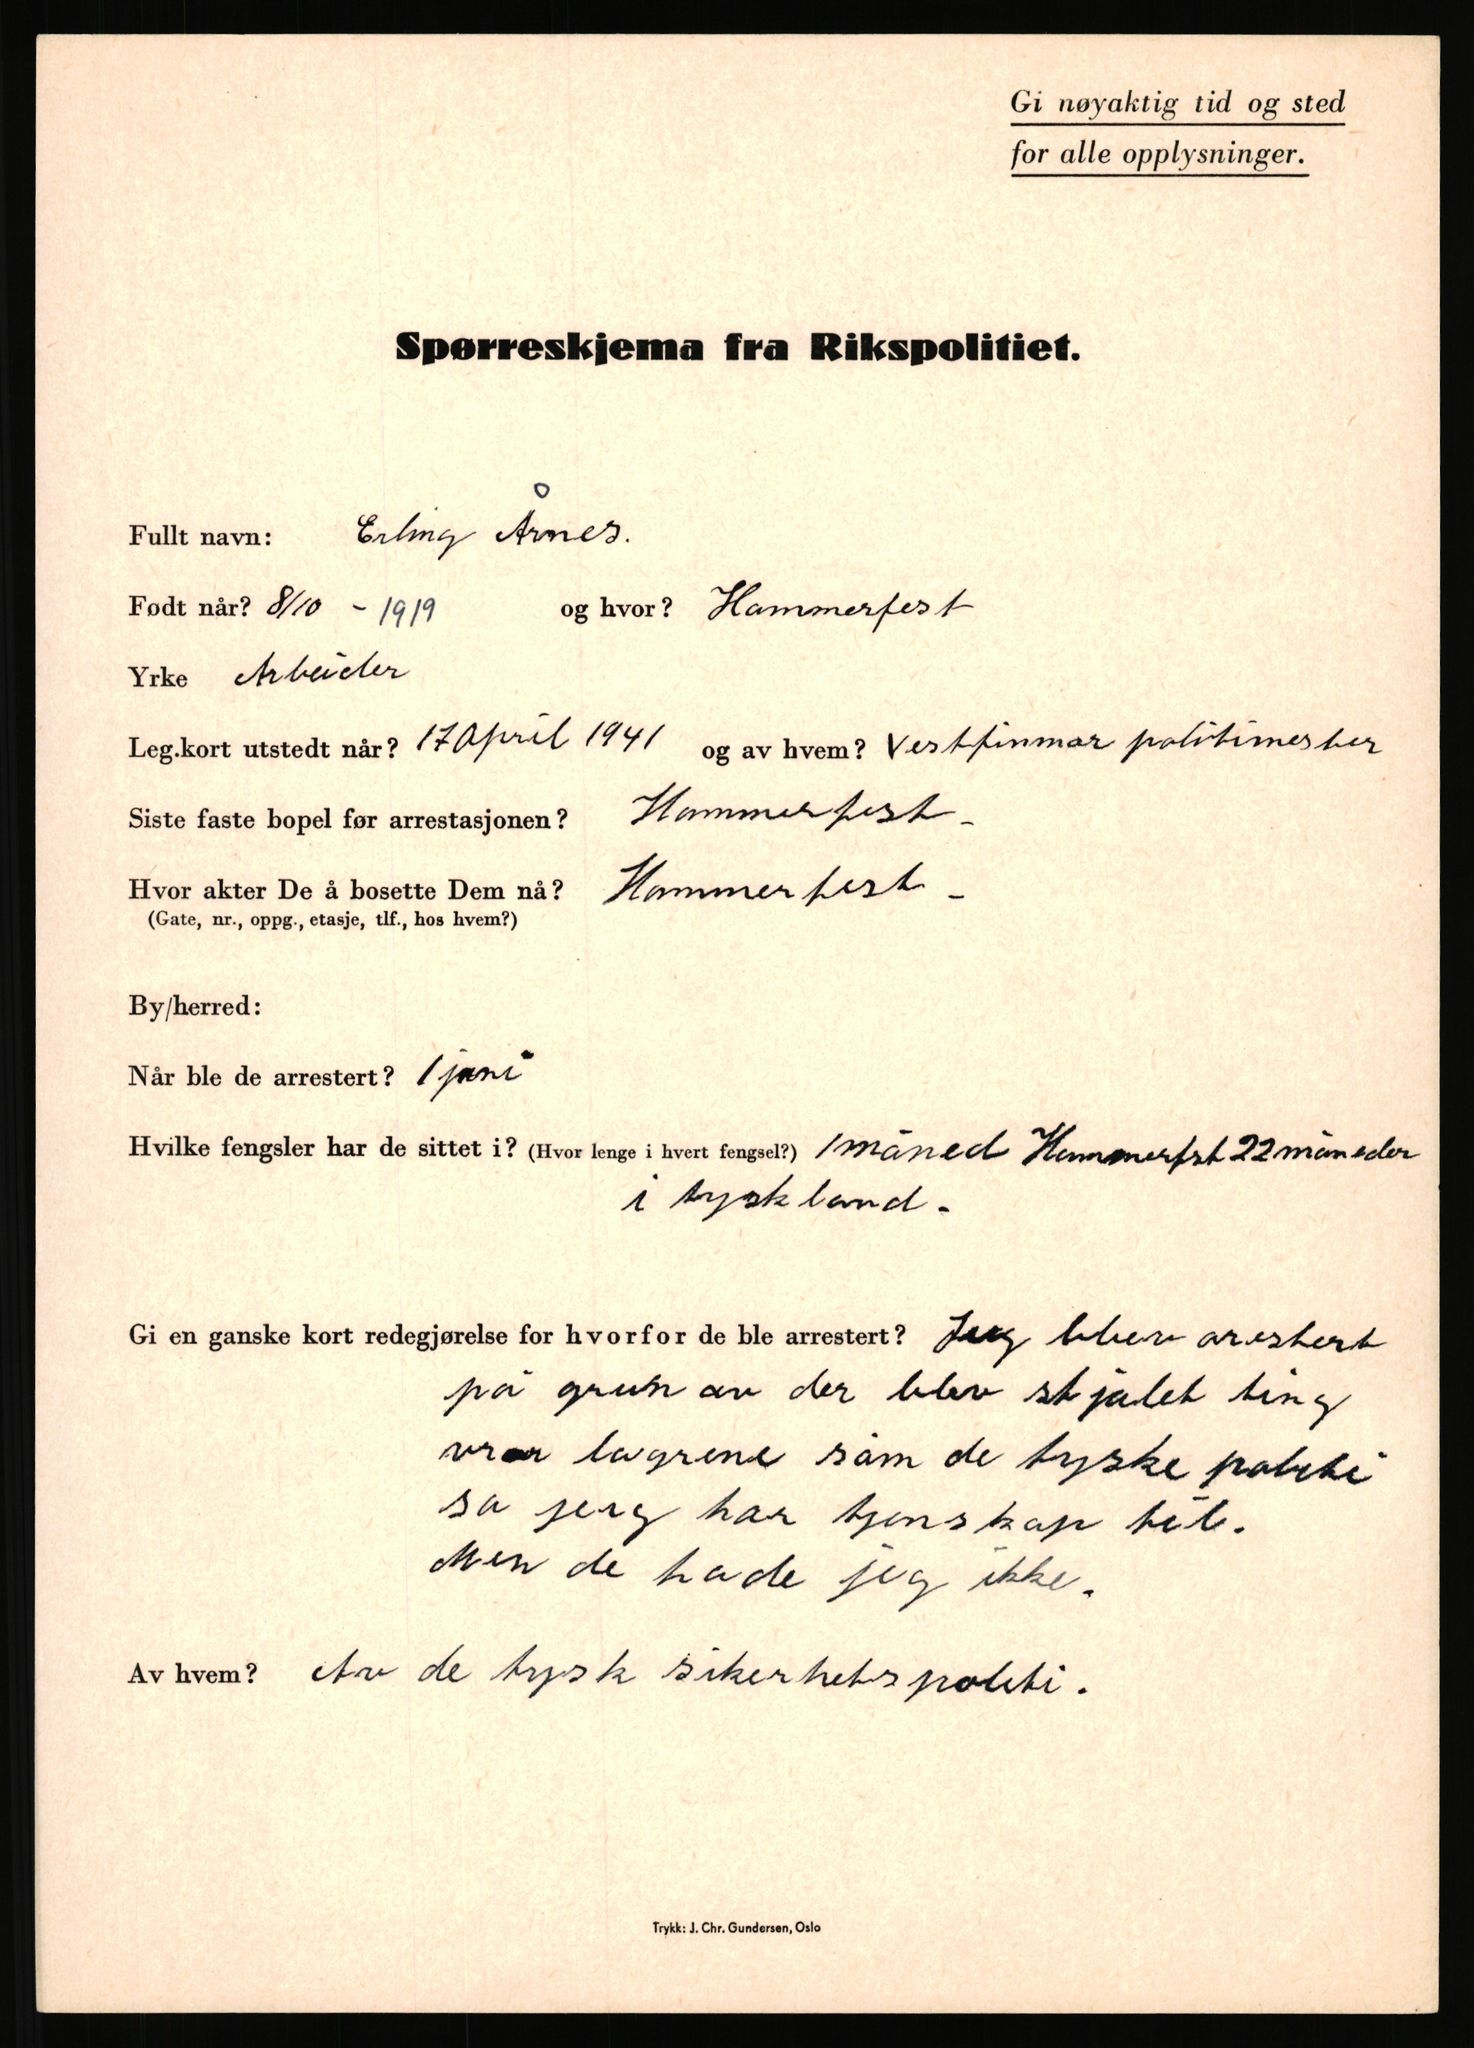 Gi nøyaktig tid og sted
for alle opplysninger.
Spørreskjema fra Rikspolitiet.
Fullt navn: Erling Årnes.
Født når? 8/10 - 1919 og hvor? Hammerfest
Yrke Arbeider
Leg.kort utstedt når? 17 April 1941 og av hvem? Vestfinmar politimester
Siste faste bopel før arrestasjonen? Hammerfest -
Hvor akter De å bosette Dem nå? Hammerfest -
(Gate, nr., oppg., etasje, tlf., hos hvem?)
By/herred:
Når ble de arrestert? 1 juni
Hvilke fengsler har de sittet i? (Hvor lenge i hvert fengsel?) 1 måned Hammerfst 22 måneder
i tyskland.
Gi en ganske kort redegjørelse for hvorfor de ble arrestert? Jeg blev arestert
på grun av der blev stjålet ting
lagrene såm de tyske politi
sa jeg har tjenskap til.
Men de hade jeg ikke.
Av hvem? Av de tysk sikerhetspoleti.
Trykk: J. Chr. Gundersen, Oslo